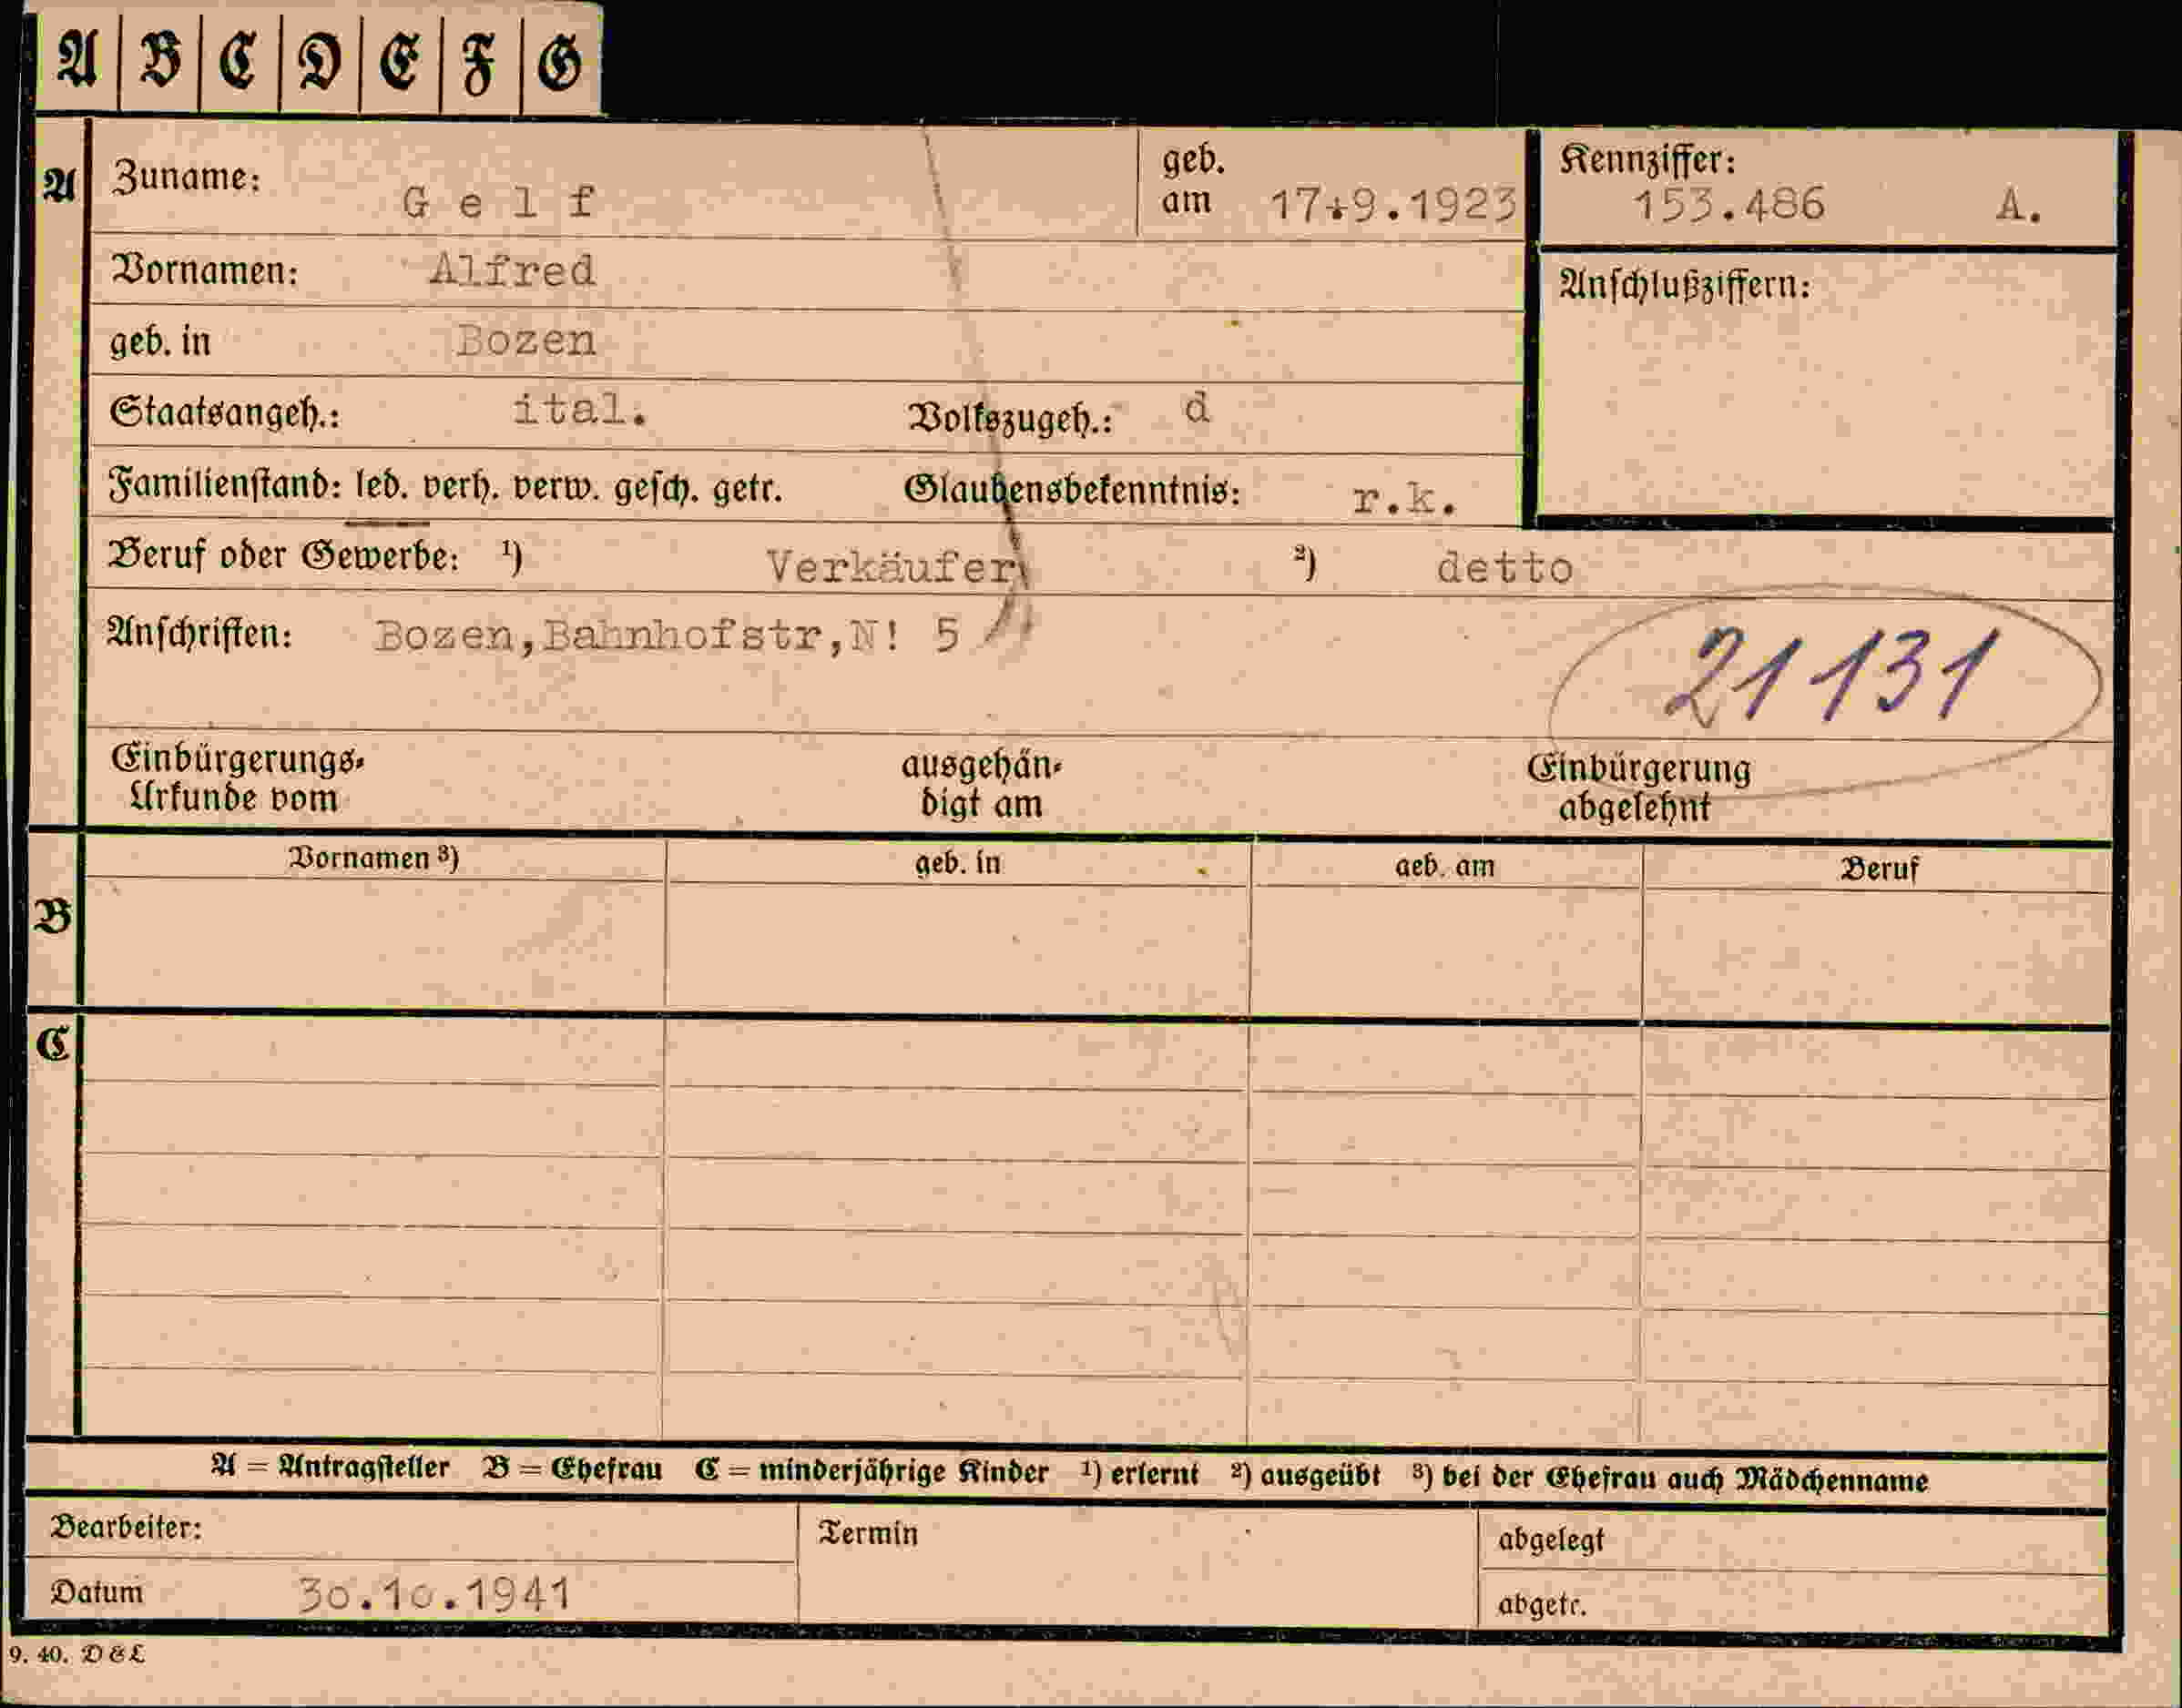 A B C D E F G
A Zuname: Gelf geb. am 17.9.1923 Kennziffer: 153.486 A.
Vornamen: Alfred Anschlußziffern:
geb. in Bozen
Staatsangeh.: ital. Volkszugeh.: d
Familienstand: led. verh. verw. gesch. getr. Glaubensbekenntnis: r.k.
Beruf oder Gewerbe: ¹) Verkäufer ²) detto
Anschriften: Bozen,Bahnhofstr,N! 5 21131
Einbürgerungs- ausgehän- Einbürgerung
Urkunde vom digt am abgelehnt
Vornamen ³) geb. in geb. am Beruf
B
C
A = Antragsteller B = Ehefrau C = minderjährige Kinder ¹) erlernt ²) ausgeübt ³) bei der Ehefrau auch Mädchenname
Bearbeiter: Termin abgelegt
Datum 30.10.1941 abgetr.
9. 40. D & L